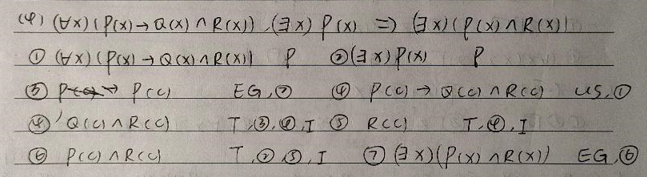 (4) (∀x)(P(x)→Q(x)∧R(x)),(∃x)P(x) => (∃x)(P(x)∧R(x))
① (∀x)(P(x)→Q(x)∧R(x)) P ②(∃x)P(x) P
③ P(c) EG,② ④ P(c)→Q(c)∧R(c) US,①
④' Q(c)∧R(c) T,③,④,I ⑤ R(c) T,④,I
⑥ P(c)∧R(c) T,②⑤,I ⑦(∃x)(P(x)∧R(x)) EG,⑥